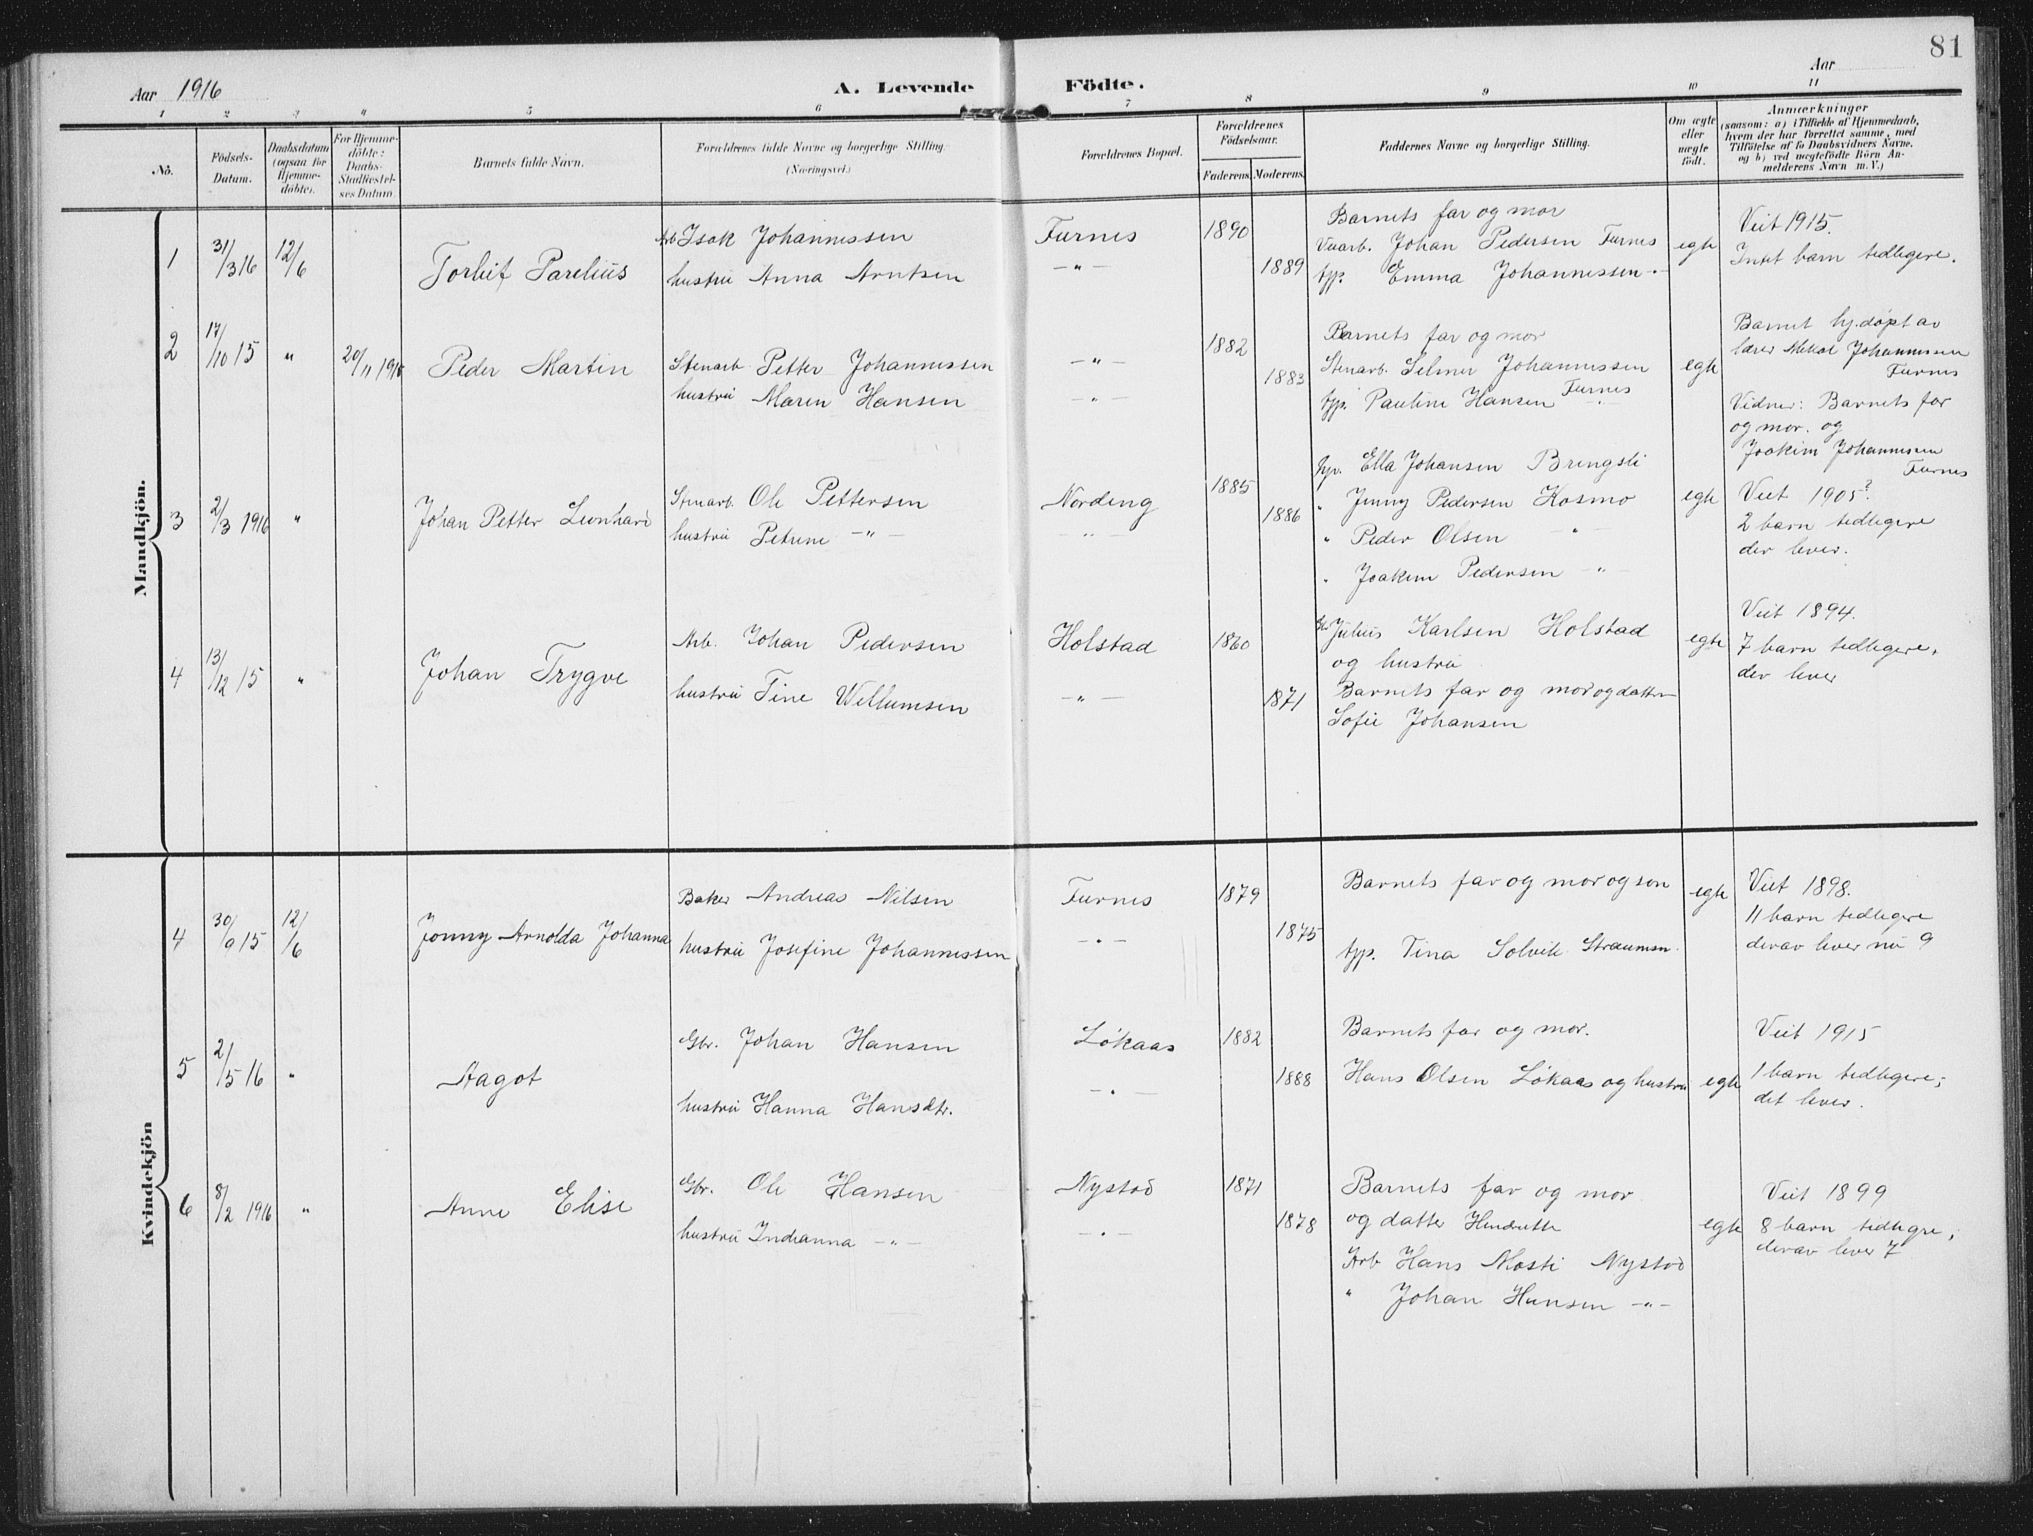 81
Aar 1916
A. Levende Födte.
Aar
1 2 3 4 5 6 7 8 9 10 11
No.
Födsels-Datum.
Daabsdatum (ogsaa for Hjemmedöbte).
For Hjemmedöbte: Daabs-Stadfæstelses Datum
Barnets fulde Navn.
Forældrenes fulde Navne og borgerlige Stilling.
(Næringsvei.)
Forældrenes Bopæl.
Forældrenes Födselsaar.
Faderens. Moderens.
Faddernes Navne og borgerlige Stilling.
Om ægte eller uægte født.
Anmærkninger
(saasom: a) i Tilfælde af Hjemmedaab, hvem der har forrettet samme, med Tilföielse af to Daabsvidners Navne, og b) ved uægtefödte Börn Anmelderens Navn m. V.)
Mandkjön.
1 31/3 16 12/6 Torleif Parelius
Arb Isak Johannessen Furnes 1890
hustru Anna Arntsen -"- 1889
Barnets far og mor
Johan Pedersen Furnes
tjp. Emma Johannessen -"-
egte
Viet 1915.
Intet barn tidligere.
2 17/10 15 " 20/11 1915 Peder Martin
Stenarb. Petter Johannessen -"- 1882
hustru Maren Hansen -"- 1883
Barnets far og mor
Stenarb. Selmer Johannessen Furnes
tjp. Pauline Hansen -"-
egte
Barnet hj.døpt av
lærer Mikal Johannessen
Furnes
Vidner: Barnets far
og mor. og
Joakim Johannessen
Furnes
3 2/3 1916 " Johan Petter Leonhard
Stenarb. Ole Pettersen Nordeng 1885
hustru Petrine -"- -"- 1886
tjp. Ella Johansen Bringsli
" Jenny Pedersen Kosmo
" Peder Olsen -"-
" Joakim Pedersen -"-
egte
Viet 1905?
2 barn tidligere
der lever.
4 13/12 15 " Johan Trygve
Arb. Johan Pedersen Holstad 1860
hustru Tine Willumsen -"- 1871
Julius Karlsen Holstad
og hustru
Barnets far og mor og datter
Sofie Johansen
egte
Viet 1894.
7 barn tidligere,
der lever
Kvindekjön
4 30/9 15 12/6 Jonny Arnolda Johanna
Baker Andreas Nilsen Furnes 1879
hustru Josefine Johannessen -"- 1875
Barnets far og mor og søn
tjp. Tina Solvik Straumen
egte
Viet 1898.
11 barn tidligere
derav lever nu 9
5 2/5 16 " Aagot
Gbr. Johan Hansen Løkaas 1882
hustru Hanna Hansdtr. -"- 1888
Barnets far og mor.
Hans Olsen Løkaas og hustru
egte
Viet 1915
1 barn tidligere;
det lever.
6 8/2 1916 " Anne Elise
Gbr. Ole Hansen Nystad 1871
hustru Indianna -"- -"- 1878
Barnets far og mor
og datter Hendrette
Arb Hans Mosti Nystad
" Johan Hansen -"-
egte
Viet 1899
8 barn tidligre;
derav lever 7